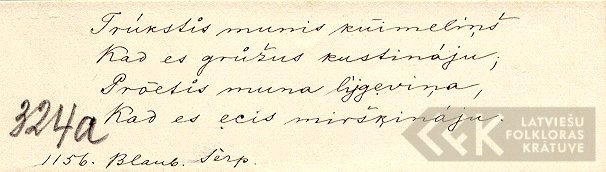 Trúkstis munis kúimeliņš
Kad es grúžus kustináju;
Prōetis muna lŷgeviņa,
324a Kad es ęcis miršķináju.
1156. Blaub. Sērp.
LATVIEŠU
FOLKLORAS
KRĀTUVE